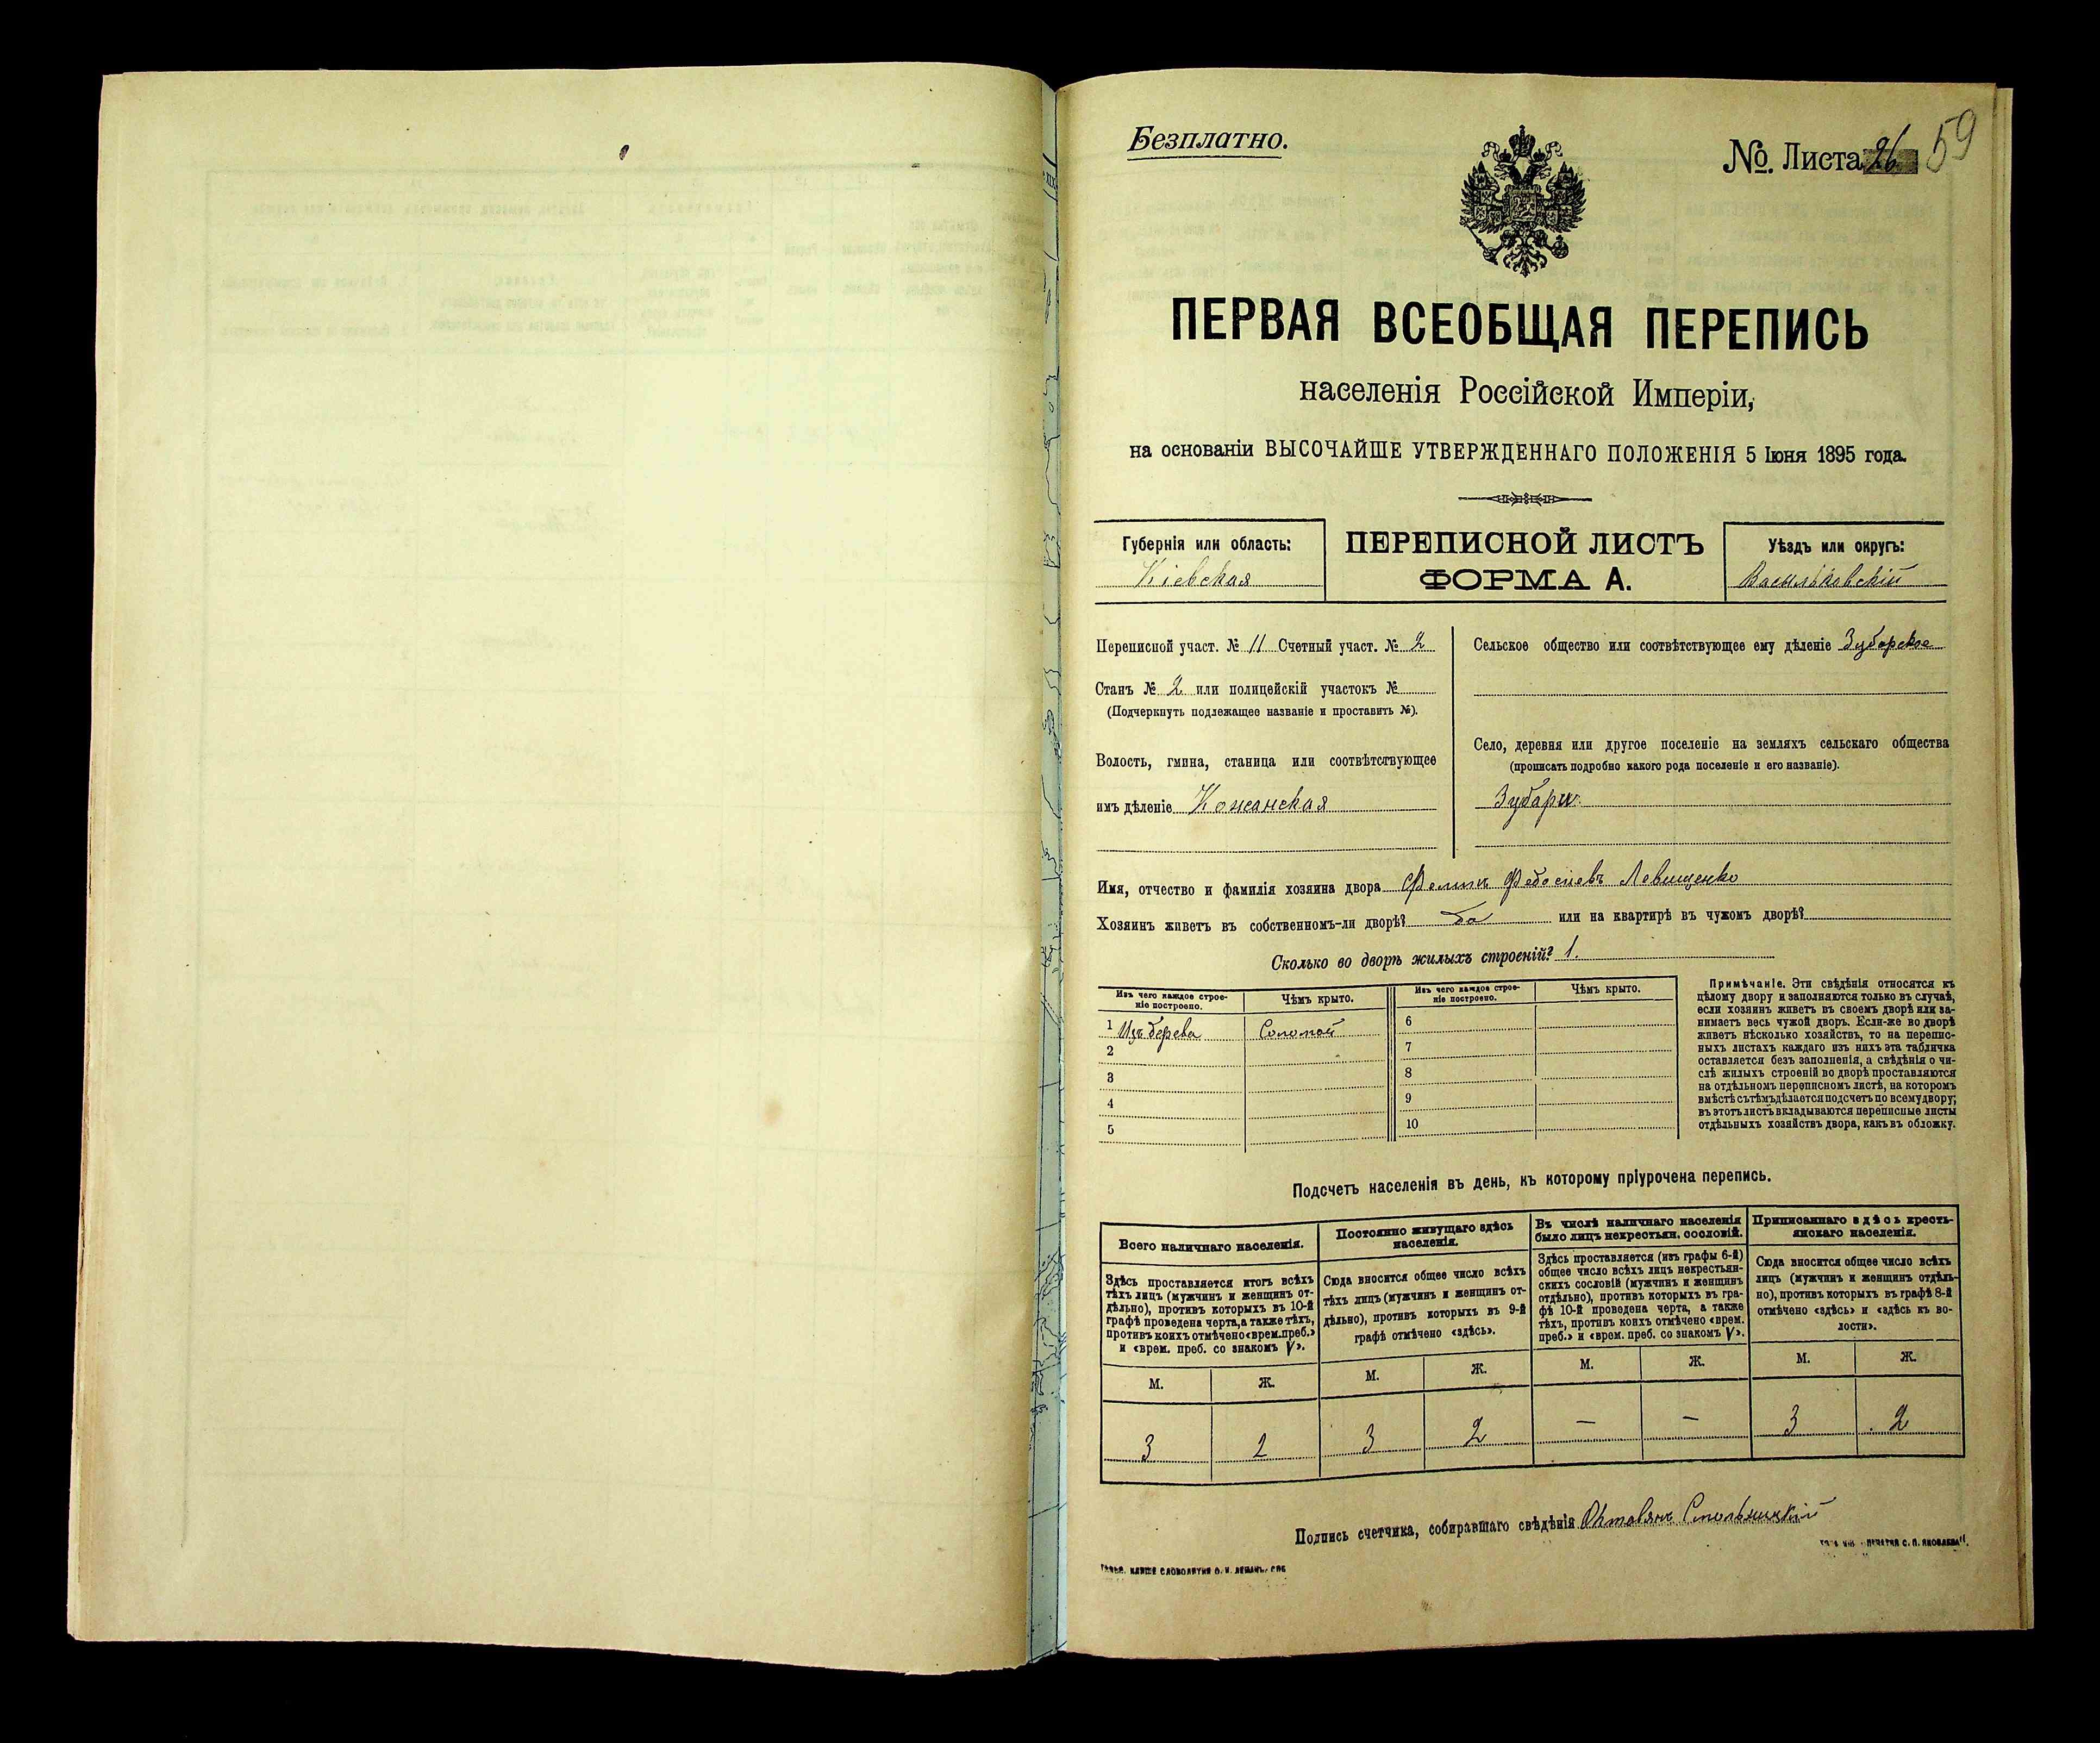 Безплатно.
№. Листа 26 59
ПЕРВАЯ ВСЕОБЩАЯ ПЕРЕПИСЬ
населенія Россійской Имперіи,
на основаніи ВЫСОЧАЙШЕ УТВЕРЖДЕННАГО ПОЛОЖЕНІЯ 5 Іюня 1895 года.
Губернія или область:
Кіевская
ПЕРЕПИСНОЙ ЛИСТЪ
ФОРМА А.
Уѣздъ или округъ:
Васильковскій
Переписной участ. № 11 Счетный участ. № 2
Станъ № 2 или полицейскій участокъ №
(Подчеркнуть подлежащее названіе и проставить №).
Волость, гмина, станица или соотвѣтствующее
имъ дѣленіе Кожанская
Сельское общество или соотвѣтствующее ему дѣленіе Зубарское
Село, деревня или другое поселеніе на земляхъ сельскаго общества
(прописать подробно какого рода поселеніе и его названіе).
Зубари
Имя, отчество и фамилія хозяина двора Левищенко
Хозяинъ живетъ въ собственномъ-ли дворѣ? да или на квартирѣ въ чужомъ дворѣ?
Сколько во дворѣ жилыхъ строеній? 1.
Изъ чего каждое строе-
ніе построено.
Чѣмъ крыто.
Изъ чего каждое строе-
ніе построено.
Чѣмъ крыто.
1 Изъ дерева Соломой
2
3
4
5
6
7
8
9
10
Примѣчаніе. Эти свѣдѣнія относятся къ
цѣлому двору и заполняются только въ случаѣ,
если хозяинъ живетъ въ своемъ дворѣ или за-
нимаетъ весь чужой дворъ. Если-же во дворѣ
живетъ нѣсколько хозяйствъ, то на перепис-
ныхъ листахъ каждаго изъ нихъ эта табличка
оставляется безъ заполненія, а свѣдѣнія о чи-
слѣ жилыхъ строеній во дворѣ проставляются
на отдѣльномъ переписномъ листѣ, на которомъ
вмѣстѣ съ тѣмъ дѣлается подсчетъ по всему двору;
въ этотъ листъ вкладываются переписные листы
отдѣльныхъ хозяйствъ двора, какъ въ обложку.
Подсчетъ населенія въ день, къ которому пріурочена перепись.
Всего наличнаго населенія.
Здѣсь проставляется итогъ всѣхъ
тѣхъ лицъ (мужчинъ и женщинъ от-
дѣльно), противъ которыхъ въ 10-й
графѣ проведена черта, а также тѣхъ,
противъ коихъ отмѣчено «врем. преб.»
и «врем. преб. со знакомъ V».
Постоянно живущаго здѣсь
населенія.
Сюда вносится общее число всѣхъ
тѣхъ лицъ (мужчинъ и женщинъ от-
дѣльно), противъ которыхъ въ 9-й
графѣ отмѣчено «здѣсь».
Въ числѣ наличнаго населенія
было лицъ некрестьян. сословій.
Здѣсь проставляется (изъ графы 6-й)
общее число всѣхъ лицъ некрестьян-
скихъ сословій (мужчинъ и женщинъ
отдѣльно), противъ которыхъ въ гра-
фѣ 10-й проведена черта, а также
тѣхъ, противъ коихъ отмѣчено «врем.
преб.» и «врем. преб. со знакомъ V».
Приписаннаго здѣсь кресть-
янскаго населенія.
Сюда вносится общее число всѣхъ
лицъ (мужчинъ и женщинъ отдѣль-
но), противъ которыхъ въ графѣ 8-й
отмѣчено «здѣсь» и «здѣсь къ во-
лости».
М. Ж. М. Ж. М. Ж. М. Ж.
3 2 3 2 — — 3 2
Подпись счетчика, собиравшаго свѣдѣнія